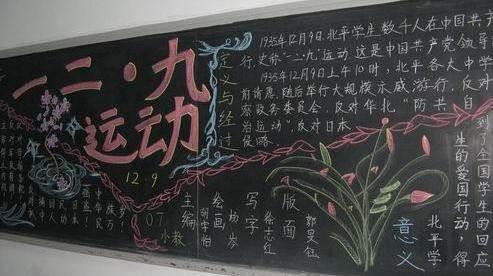 一二·九
运动
12.9
07
小教
定义与经过
1935年12月9日,北平学生数千人在中国共产
行,史称"一二·九"运动 这是中国共产党领导
1935年12月9日上午10时,北平各大中学
前请愿,随后举行大规模示威游行,反对
察政务委员会,反对华北"防共自
治运动",反对日本
侵略
主编
绘画
写字
版面
徐志红
意义
北平学
生的爱国行动得
到了全国学生的回应